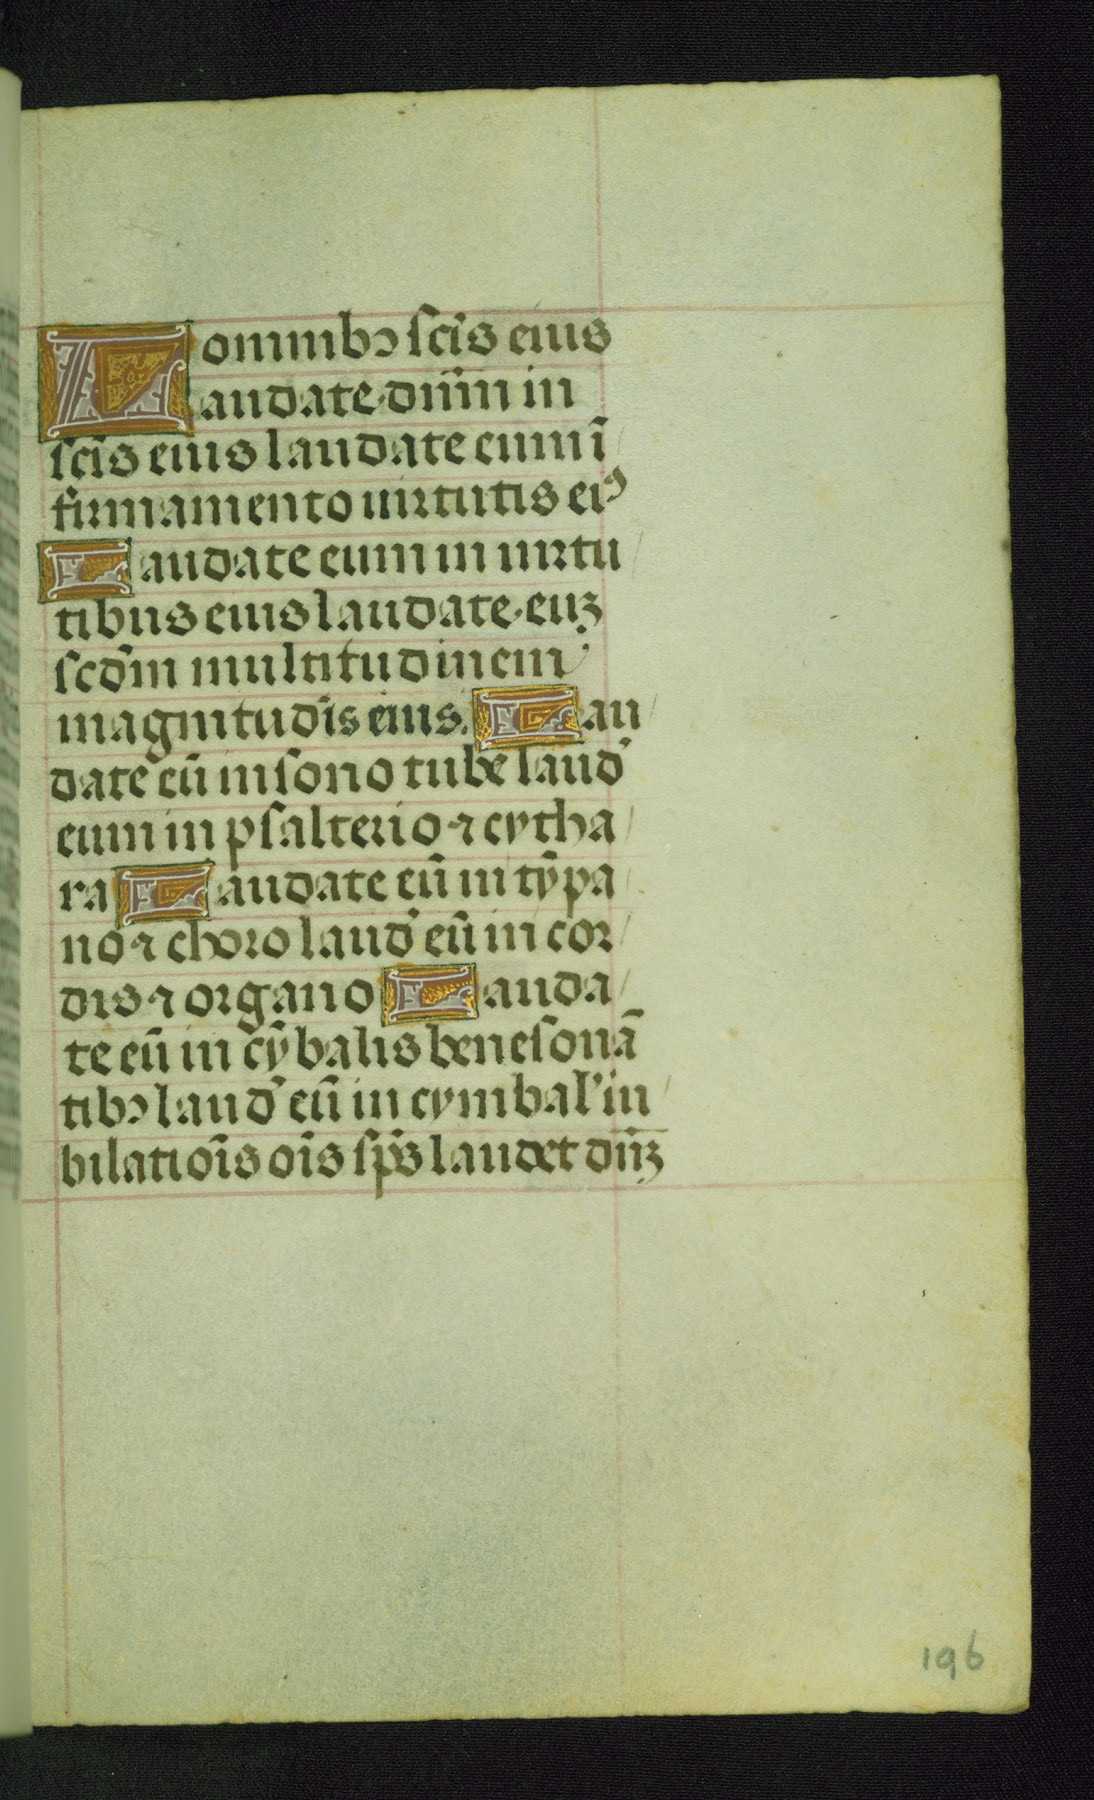 omnibꝰ sc̄is eius
Laudate dn̄m in
sc̄is eius laudate eum ī
firmamento uirtutis eiꝰ
Laudate eum in uirtu
tibus eius laudate euꝫ
scd̄m multitudinem
magnitud̄is eius. Lau
date eū in sono tube laud̛
eum in psalterio ⁊ cytha
ra Laudate eū in tȳpa
no ⁊ choro laud̛ eū in cor
dis ⁊ organo Lauda
te eū in cȳbalis benesonā
tibꝰ laud̛ eū in cymbal' iu
bilatiōis oīs sp̄s laudet dn̄ꝫ
196